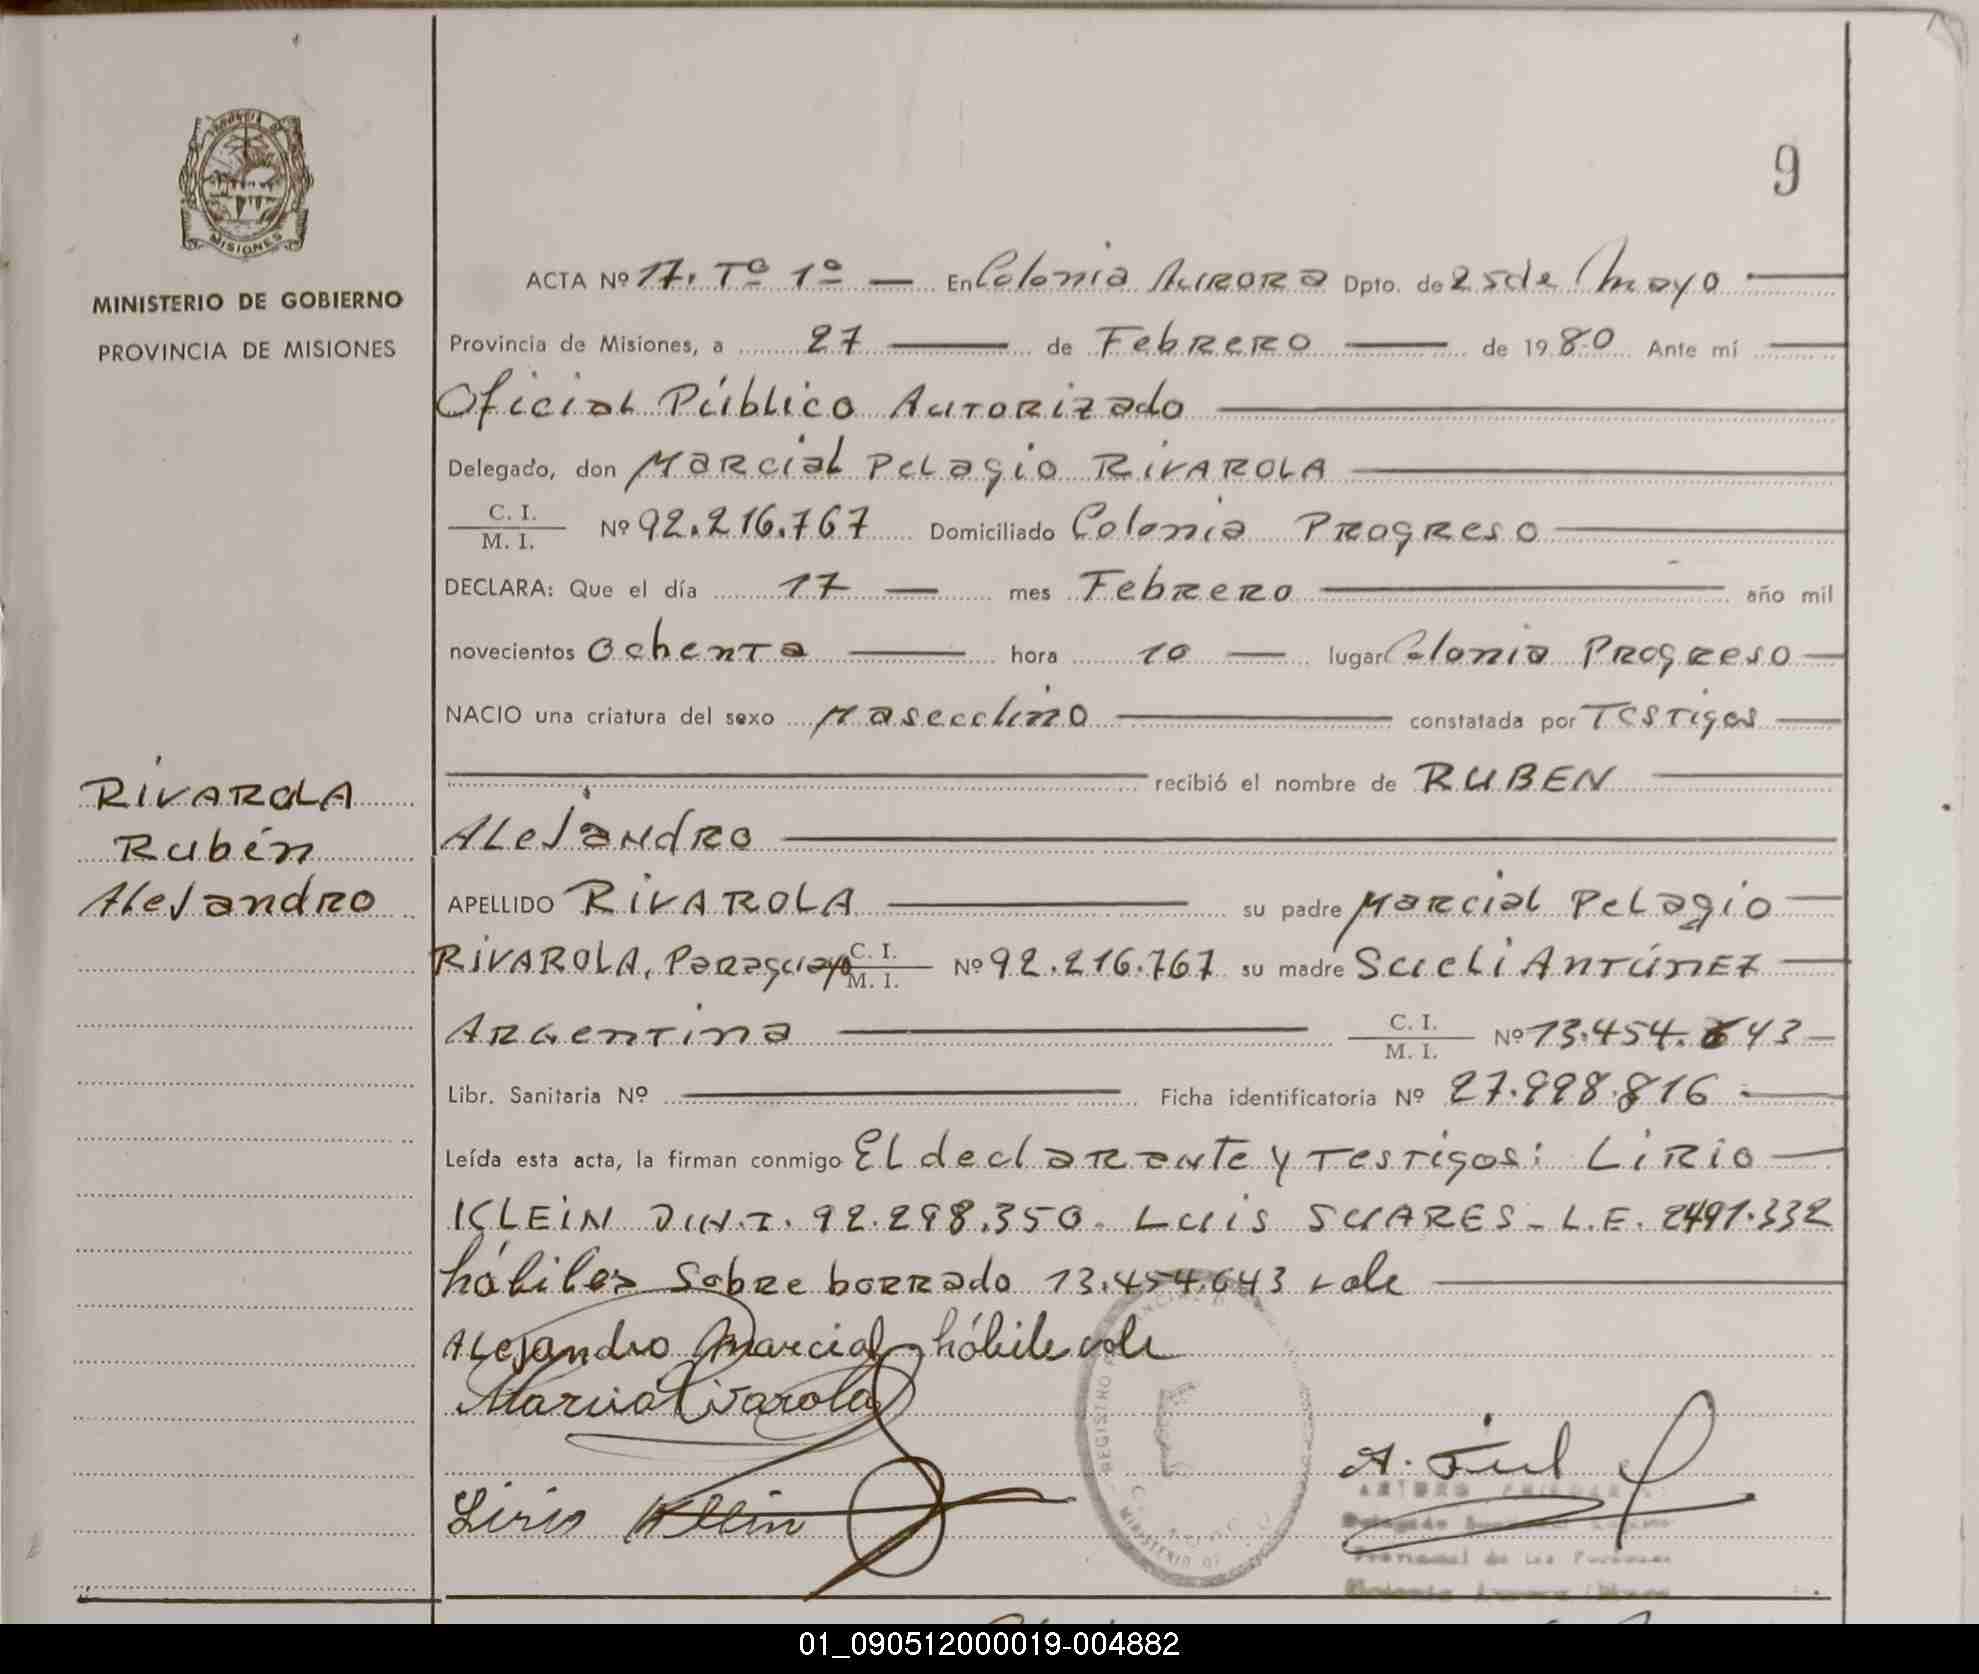 PROVINCIA DE
MISIONES
MINISTERIO DE GOBIERNO
PROVINCIA DE MISIONES
9
ACTA Nº 17. Tº 1º — En Colonia AURORA Dpto. de 25 de Mayo —
Provincia de Misiones, a 27 — de FebRERO — de 1980 Ante mí —
Oficial Público AUTORIZado —
Delegado, don MARcial PeLagio RIVAROLA —
C. I.
M. I.
Nº 92.216.767 Domiciliado Colonia PROgReso —
DECLARA: Que el día 17 — mes FebRERO — año mil
novecientos OchenTa — hora 10 — lugar Colonia PROgReso —
NACIO una criatura del sexo Masculino — constatada por TesTigos —
— recibió el nombre de RUBEN —
ALeJandRO —
RIVAROLA
Rubén
AleJandRO
APELLIDO RIVAROLA — su padre MARcial PeLagio —
RIVAROLA, Paraguayo C. I.
M. I.
Nº 92.216.767 su madre SueLi ANTÚNEZ —
ARGenTina — C. I.
M. I.
Nº 13.454.643 —
Libr. Sanitaria Nº — Ficha identificatoria Nº 27.998.816 . —
Leída esta acta, la firman conmigo EL declaRante y TesTigos: LiRio —
KLEIN D.N.I. 92.298.350. Luis SUARES - L.E. 2491.332
hábiles Sobre borrado 13.454.643 vale —
ALejandro Marcial hábile vale
Marcial Rivarola
Lirio Klein
REGISTRO PROVINCIAL DE
MINISTERIO DE
01_090512000019-004882